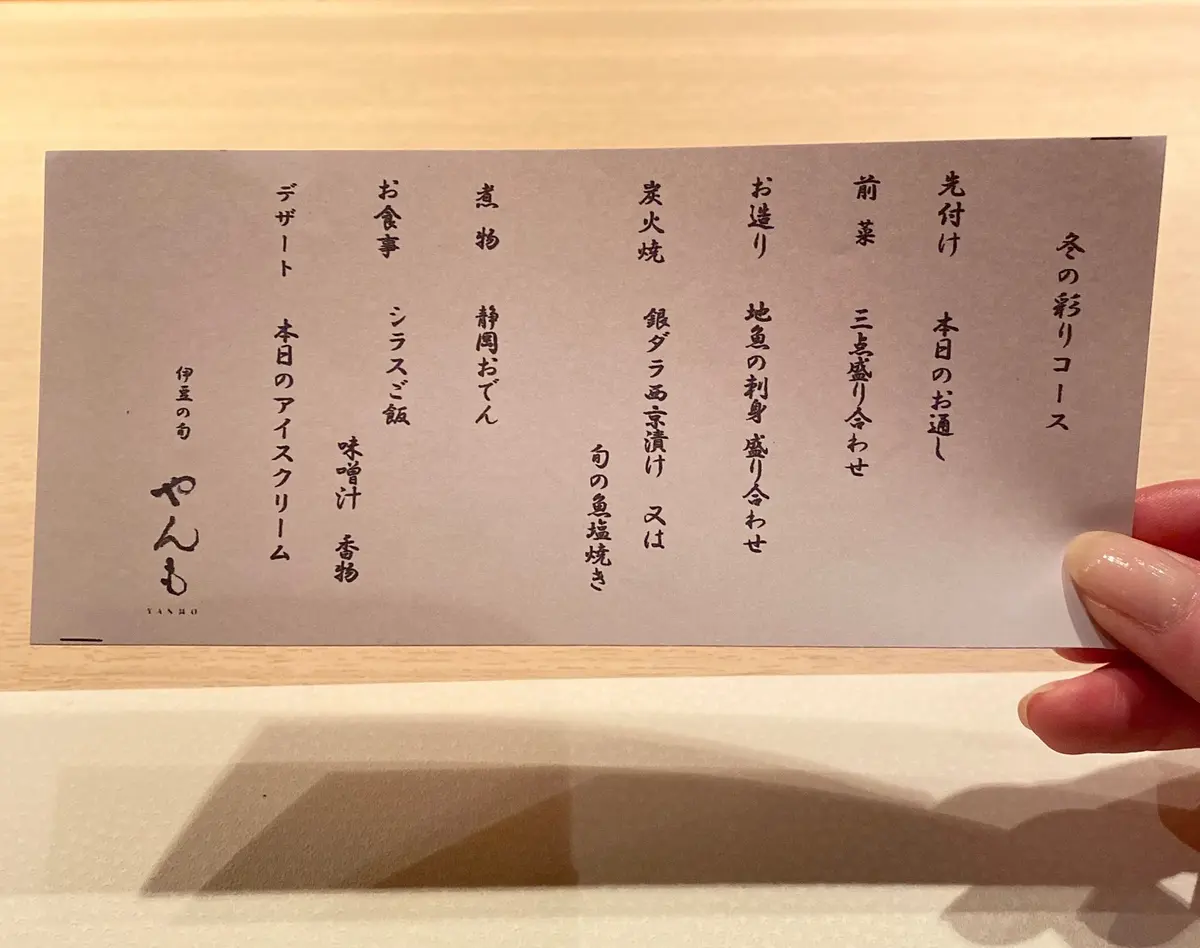 冬の彩りコース
先付け 本日のお通し
前菜 三点盛り合わせ
お造り 地魚の刺身 盛り合わせ
炭火焼 銀ダラ西京漬け 又は
旬の魚塩焼き
煮物 静岡おでん
お食事 シラスご飯
味噌汁 香物
デザート 本日のアイスクリーム
伊豆の旬
やんも
YANMO